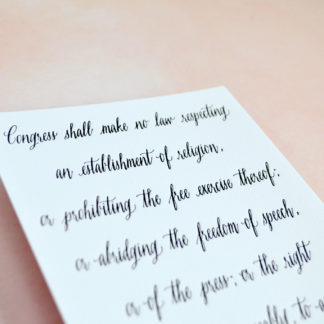 Congress shall make no law respecting
an establishment of religion,
or prohibiting the free exercise thereof;
or abridging the freedom of speech,
or of the press; or the right
to